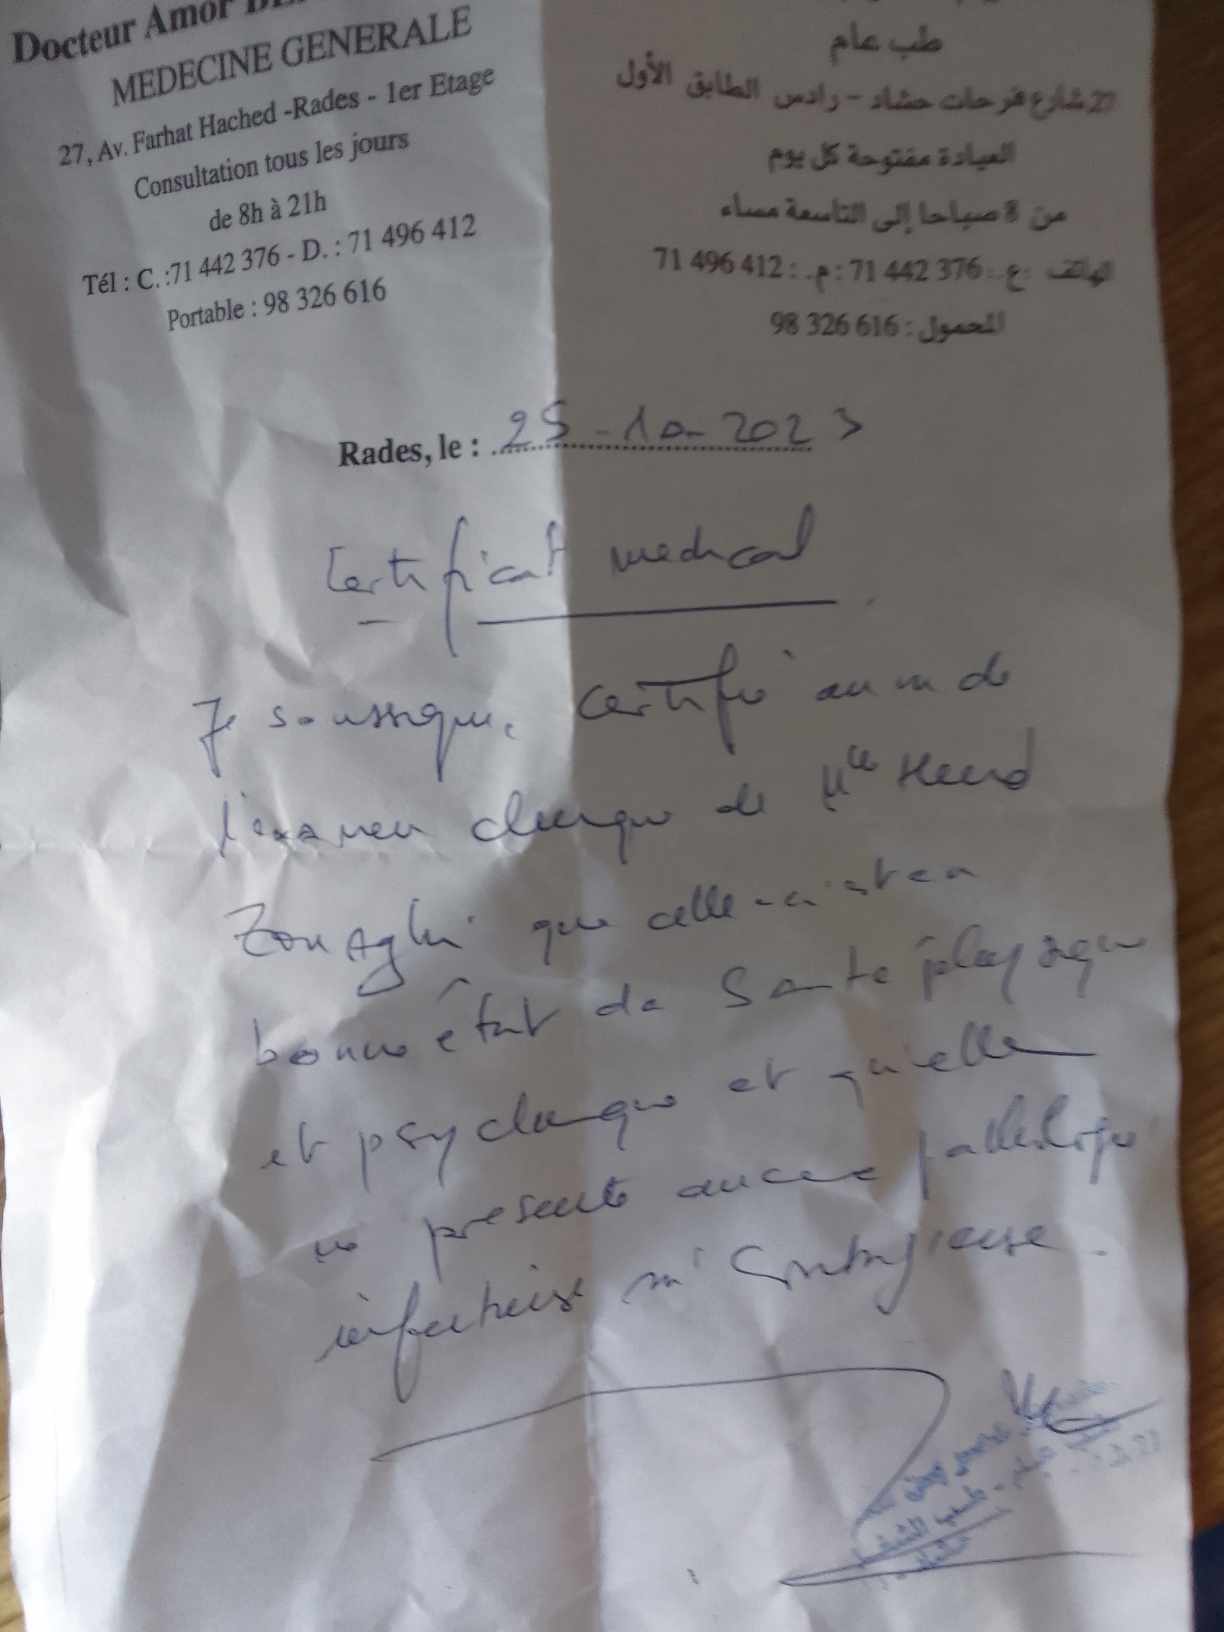 Docteur Amor
MEDECINE GENERALE
27, Av. Farhat Hached -Rades - 1er Etage
Consultation tous les jours
de 8h à 21h
Tél : C. :71 442 376 - D. : 71 496 412
Portable : 98 326 616
طب عام
27 شارع فرحات حشاد - رادس الطابق الأول
العيادة مفتوحة كل يوم
من 8 صباحا إلى التاسعة مساء
الهاتف : ع. : 376 442 71 : م. : 412 496 71
المحمول : 616 326 98
Rades, le : 25-10-2023
Certificat medical
Je soussigné, certifie au m de
l'examen clinique de Mlle Hend
que celle-ci est en
bonne état de Santé physique
et psychique et qu'elle
ne présente aucune pathologie
infectieuse ni Contagieuse.